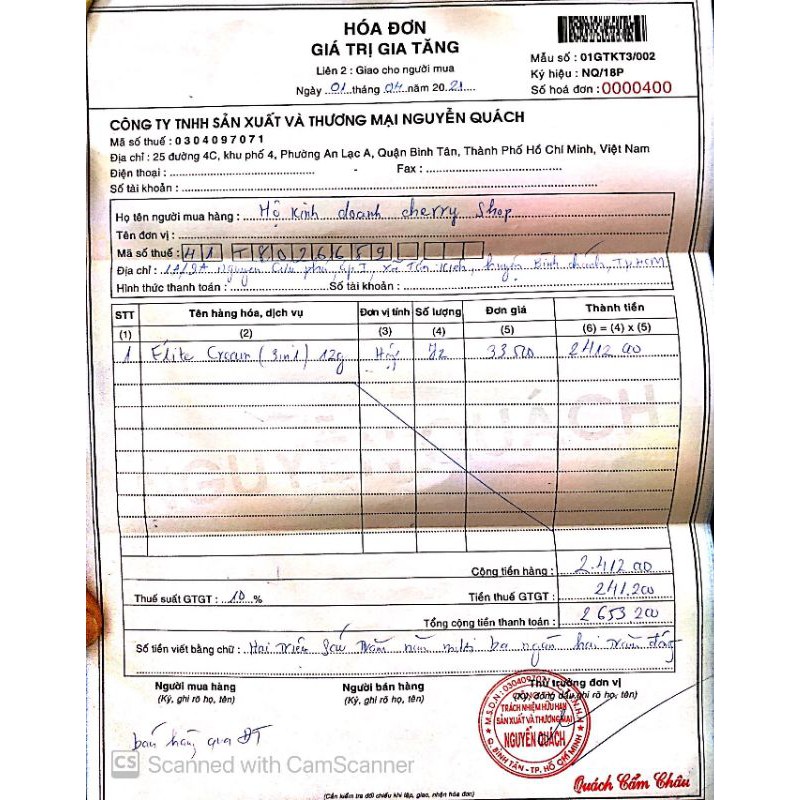 HÓA ĐƠN
GIÁ TRỊ GIA TĂNG
Liên 2 : Giao cho người mua
Ngày 01 tháng 04 năm 2021
Mẫu số : 01GTKT3/002
Ký hiệu : NQ/18P
Số hoá đơn : 0000400
CÔNG TY TNHH SẢN XUẤT VÀ THƯƠNG MẠI NGUYỄN QUÁCH
Mã số thuế : 0304097071
Địa chỉ : 25 đường 4C, khu phố 4, Phường An Lạc A, Quận Bình Tân, Thành Phố Hồ Chí Minh, Việt Nam
Điện thoại : - Fax :
Số tài khoản :
Họ tên người mua hàng : Hộ kinh doanh cherry Shop
Tên đơn vị :
Mã số thuế : 41 T8026659
Địa chỉ : Nguyễn Cửu phú, ấp 1, xã Tân Kiên, huyện Bình chánh, TP.HCM
Hình thức thanh toán : Số tài khoản :
STT Tên hàng hóa, dịch vụ Đơn vị tính Số lượng Đơn giá Thành tiền
(1) (2) (3) (4) (5) (6) = (4) x (5)
1 Elite Cream (3in1) 12g 72 33.500 2.412.000
Cộng tiền hàng : 2.412.000
Thuế suất GTGT : 10 % Tiền thuế GTGT : 241.200
Tổng cộng tiền thanh toán : 2 653 200
Số tiền viết bằng chữ : Hai Triệu Sáu Trăm năm mươi ba ngàn hai trăm đồng
Người mua hàng Người bán hàng Thủ trưởng đơn vị
(Ký, ghi rõ họ, tên) (Ký, ghi rõ họ, tên) (Ký, đóng dấu, ghi rõ họ, tên)
M.S.D.N: 0304097071
TRÁCH NHIỆM HỮU HẠN
SẢN XUẤT VÀ THƯƠNG MẠI
NGUYỄN QUÁCH
Q. BÌNH TÂN - TP. HỒ CHÍ MINH
bán hàng qua ĐT
CS Scanned with CamScanner
Quách Cẩm Châu
(Cần kiểm tra đối chiếu khi lập, giao, nhận hóa đơn)